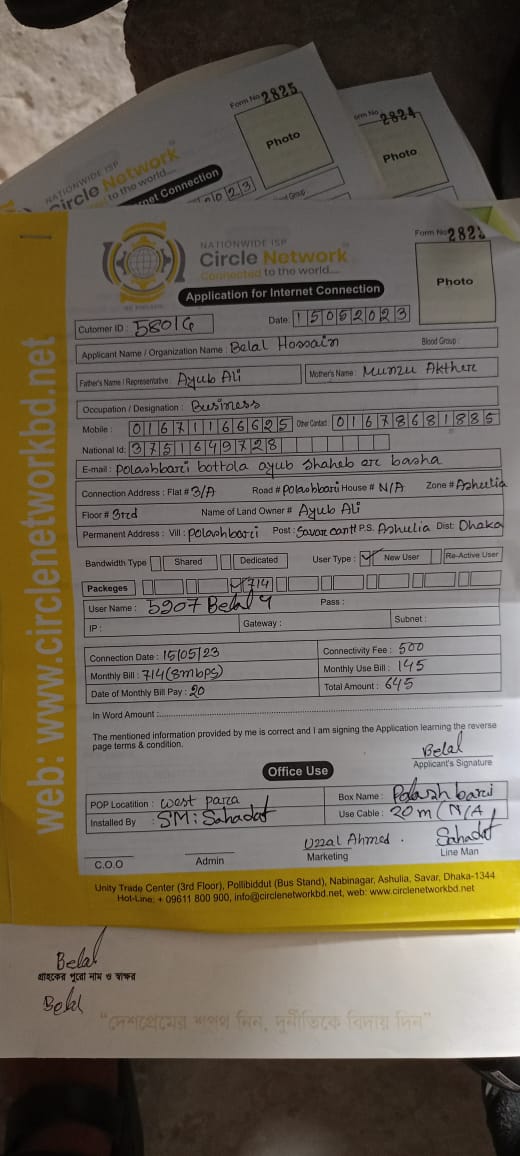 Form No 2825
Photo
orm No 2824
Photo
NATIONWIDE ISP
Circle Network
to the world....
rnet Connection
Form No 282
NATIONWIDE ISP
Circle Network
Connected to the world....
Photo
Application for Internet Connection
Cutomer ID : 58016 Date: 15052023
Applicant Name / Organization Name : Belal Hossain Blood Group :
Father's Name / Representative : Ayub Ali Mother's Name : Munzu Akther
Occupation / Designation : Business
Mobile : 01671166625 Other Contact : 01678681885
National Id: 3751649728
E-mail : Polashbari bottola ayub shaheb er basha
Connection Address : Flat # 3/A Road # Polashbari House # N/A Zone # Ashulia
Floor # 3rd Name of Land Owner # Ayub Ali
Permanent Address : Vill : Polashbari Post : Savar cantt P.S. Ashulia Dist: Dhaka
Bandwidth Type Shared Dedicated User Type : New User Re-Active User
Packeges 714
User Name : 5907 Belal 4 Pass :
IP : Gateway : Subnet :
Connection Date : 15/05/23 Connectivity Fee : 500
Monthly Bill : 714 (8mbps) Monthly Use Bill : 145
Date of Monthly Bill Pay : 20 Total Amount : 645
In Word Amount :
The mentioned information provided by me is correct and I am signing the Application learning the reverse
page terms & condition.
Belal
Applicant's Signature
Office Use
POP Locatition : West Para Box Name : Polashbari
Installed By : SM: Sahadat Use Cable : 20m (N/A
Uzzal Ahmed. Sahadat
C.O.O Admin Marketing Line Man
Unity Trade Center (3rd Floor), Pollibiddut (Bus Stand), Nabinagar, Ashulia, Savar, Dhaka-1344
Hot-Line: + 09611 800 900, info@circlenetworkbd.net, web: www.circlenetworkbd.net
web: www.circlenetworkbd.net
Belal
গ্রাহকের পুরো নাম ও স্বাক্ষর
Belal
"দেশপ্রেমের শপথ নিন, দুর্নীতিকে বিদায় দিন"